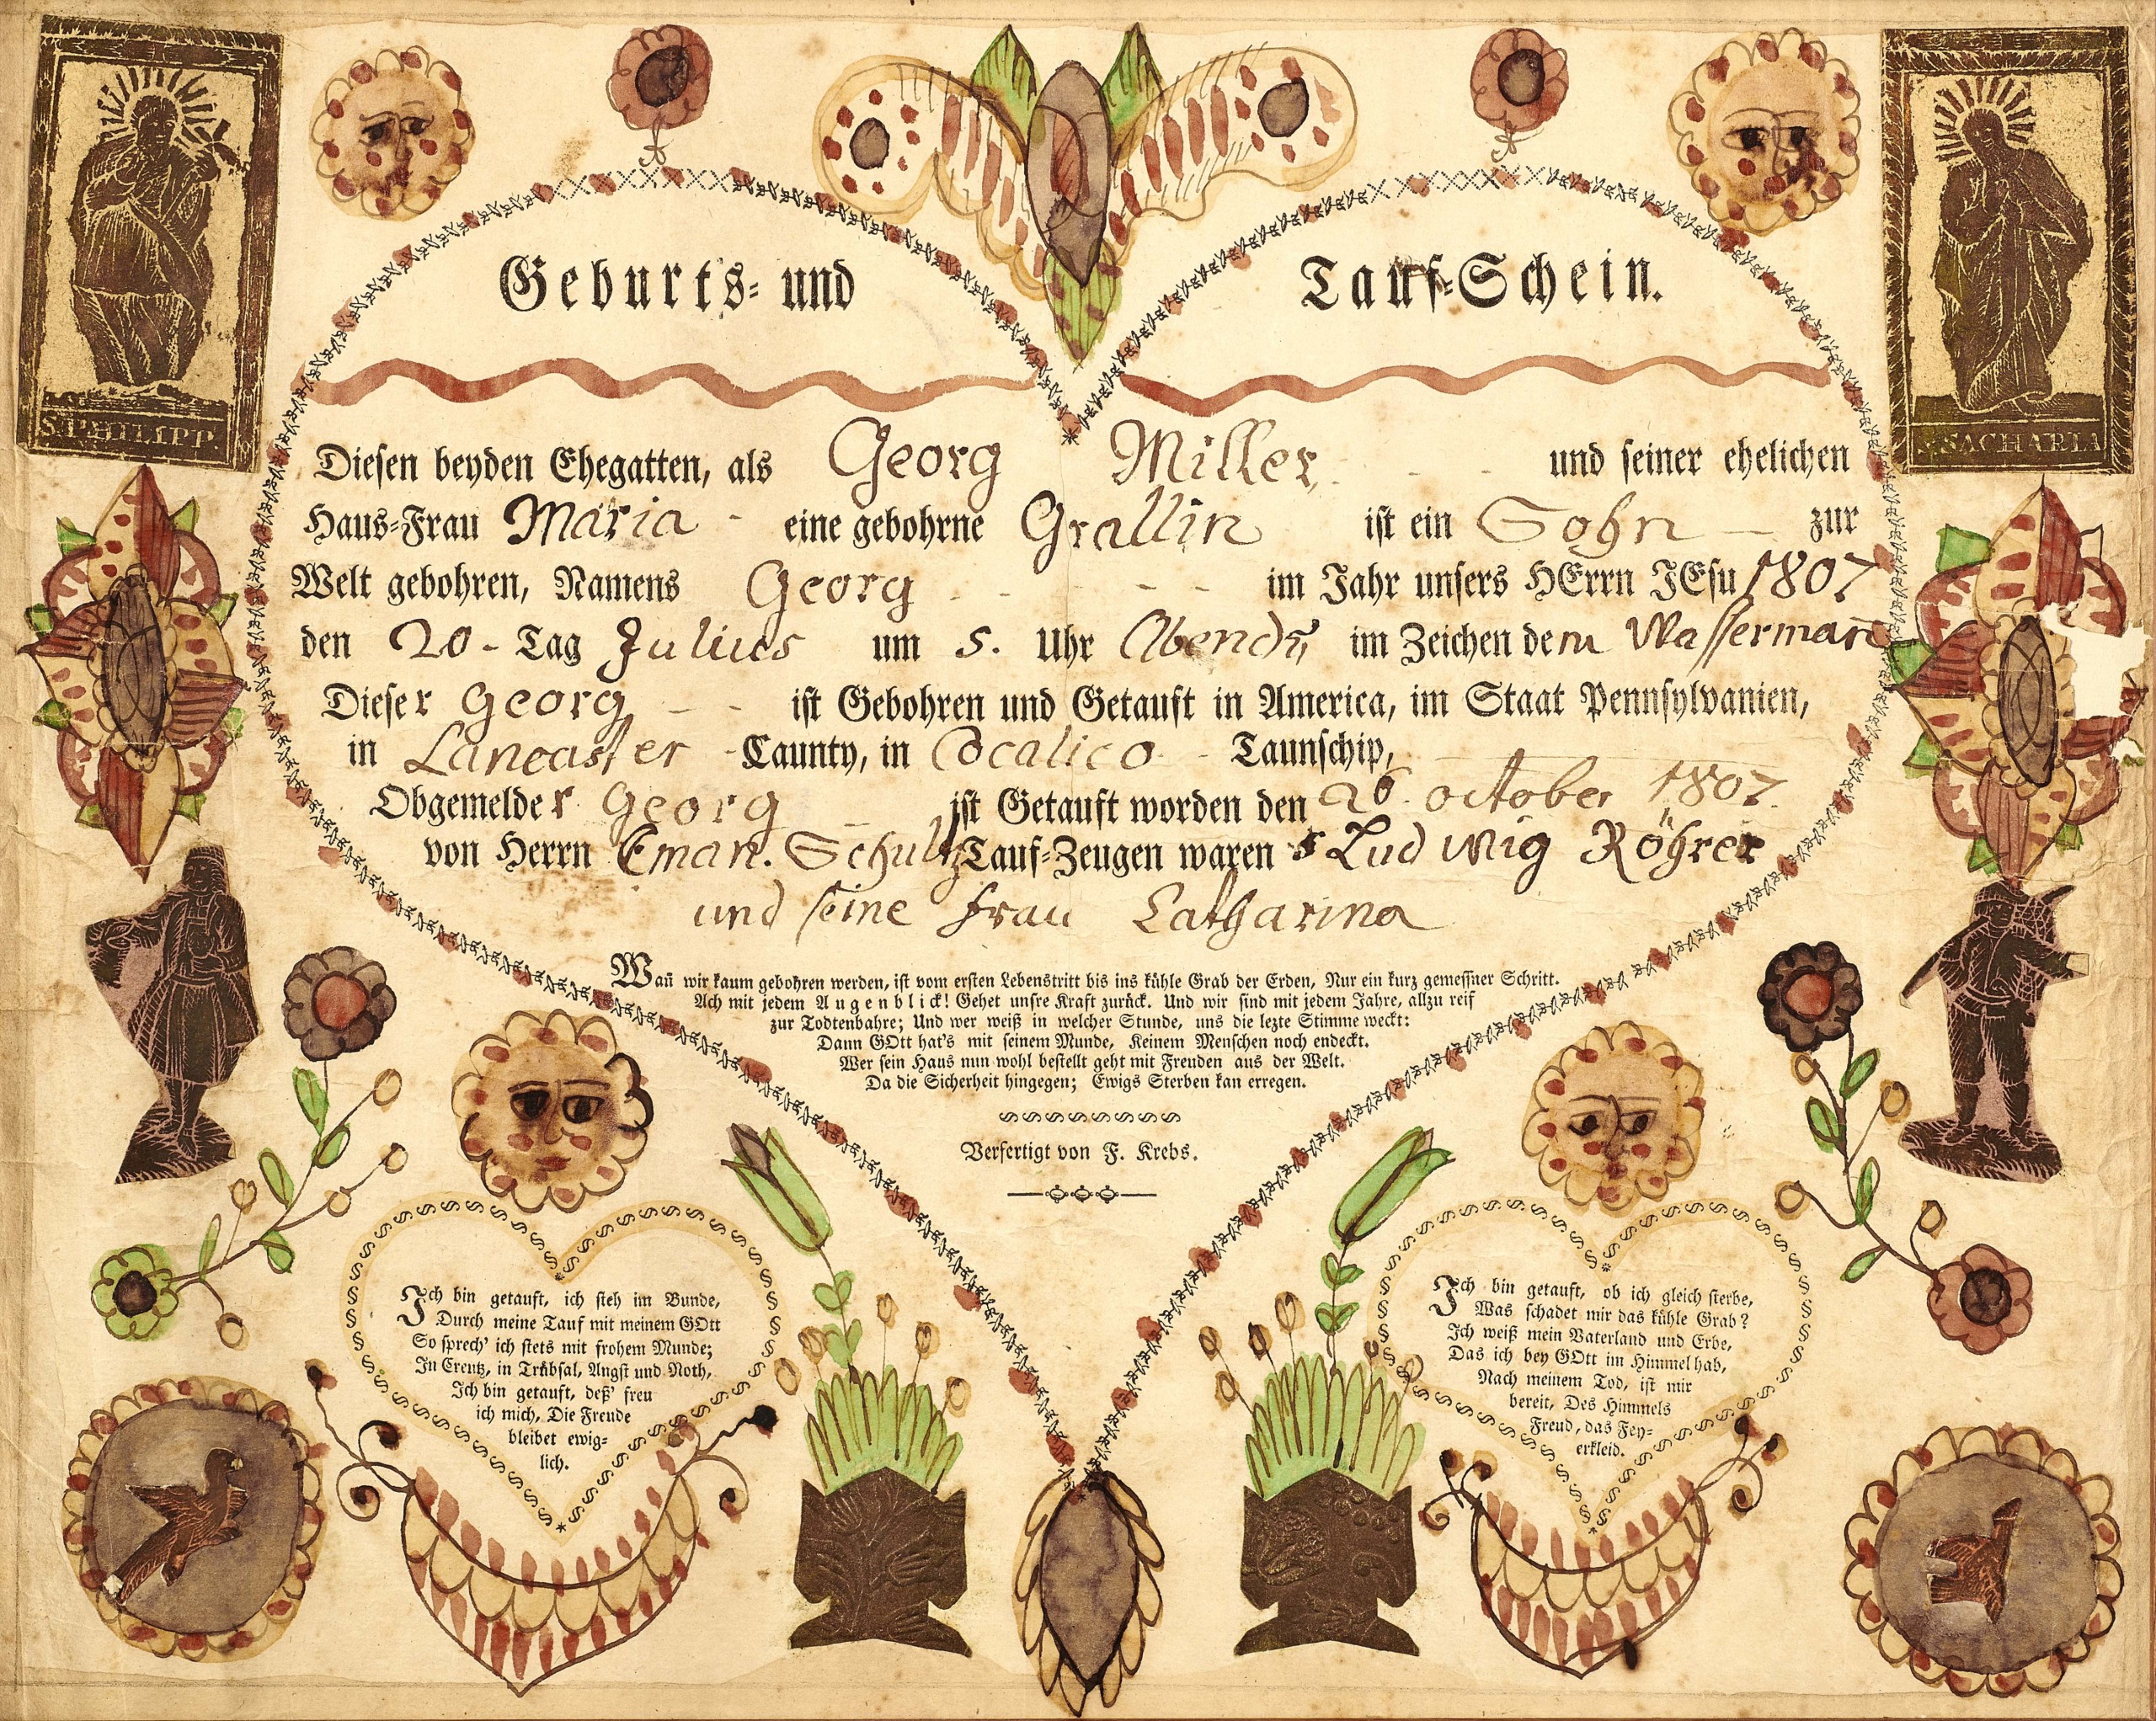 Geburts- und Tauf-Schein.
S. PHILIPP.
SACHARIA
Diesen beyden Ehegatten, als Georg Miller und seiner ehelichen
Haus-Frau Maria - eine gebohrne Grallin ist ein Sohn — zur
Welt gebohren, Namens Georg - - - - im Jahr unsers HErrn JEsu 1807
den 20 - Tag Julius um 5. Uhr Abends, im Zeichen dem Wasserman̄
Dieser Georg - - ist Gebohren und Getauft in America, im Staat Pennsylvanien,
in Lancaster - Caunty, in Cocalico - Taunschip,
Obgemelder Georg — ist Getauft worden den 26. october 1807.
von Herrn Eman. Schultz Tauf-Zeugen waren Ludwig Röhrer
und seine frau Catharina
Wan̄ wir kaum gebohren werden, ist vom ersten Lebenstritt bis ins kühle Grab der Erden, Nur ein kurz gemessner Schritt.
Ach mit jedem Augenblick! Gehet unsre Kraft zurück. Und wir sind mit jedem Jahre, allzu reif
zur Todtenbahre; Und wer weiß in welcher Stunde, uns die lezte Stimme weckt:
Dann GOtt hat's mit seinem Munde, Keinem Menschen noch endeckt.
Wer sein Haus nun wohl bestellt geht mit Freuden aus der Welt.
Da die Sicherheit hingegen; Ewigs Sterben kan erregen.
Verfertigt von F. Krebs.
Ich bin getauft, ich steh im Bunde,
Durch meine Tauf mit meinem GOtt
So sprech' ich stets mit frohem Munde;
In Creutz, in Trübsal, Angst und Noth,
Ich bin getauft, deß' freu
ich mich, Die Freude
bleibet ewig-
lich.
Ich bin getauft, ob ich gleich sterbe,
Was schadet mir das kühle Grab?
Ich weiß mein Vaterland und Erbe,
Das ich bey GOtt im Himmel hab,
Nach meinem Tod, ist mir
bereit, Des Himmels
Freud, das Fey-
erkleid.